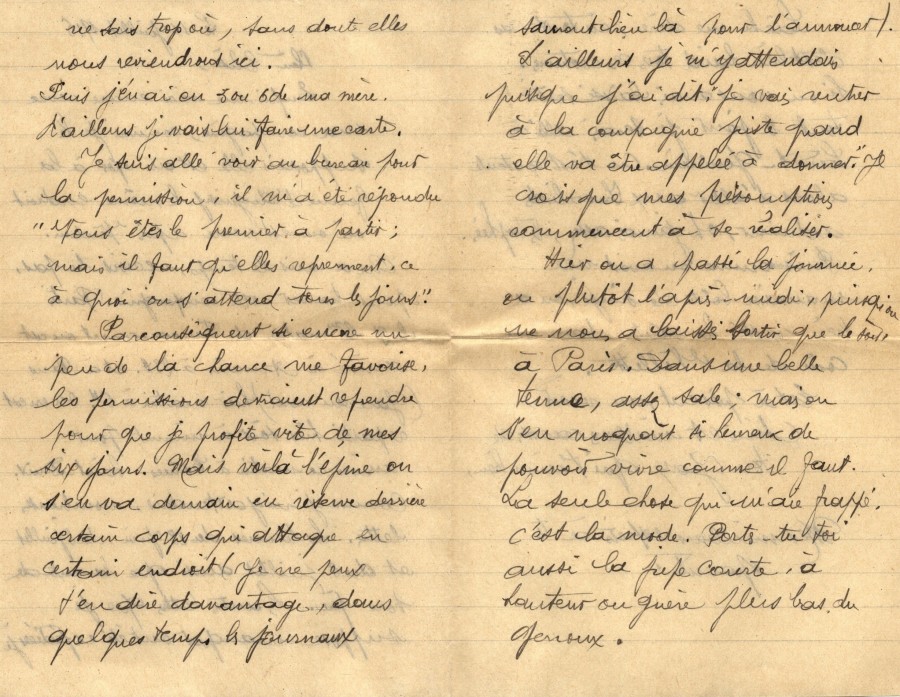 ne sais trop où, sans dout elles
nous reviendrons ici.
Puis j'en ai eu 5 ou 6 de ma mère.
D'ailleurs je vais lui faire une carte.
Je suis allé voir au bureau pour
la permission, il m'a été répondu
"Vous êtes le premier à partir;
mais il faut qu'elles reprennent, ce
à quoi on s'attend tous les jours".
Par conséquent si encore un
peu de la chance me favorise,
les permissions devraient reprendre
pour que je profit vite de mes
six jours. Mais voilà l'épine on
s'en va demain en réserve derrière
certain corps qui attaque, en
certain endroit! Je ne peux
t'en dire davantage, dans
quelques temps les journaux
sauront bien là pour l'annoncer).
D'ailleurs je m'y attendais
puisque j'ai dit: "je vais rentrer
à la compagnie juste quand
elle va être appelée à donner." Je
crois que mes présomptions
commencent à se réaliser.
Hier on a passé la journée,
ou plutôt l'après-midi, puisqu'on
ne nous a laissés sortir que le soir,
à Paris. Dans une belle
tenue, assez sale; mais on
s'en moquait si heureux de
pouvoir vivre comme il faut.
La seule chose qui m'aie frappé,
c'est la mode. Portes-tu toi
aussi la jupe courte, à
hauteur ou guère plus bas du
genoux.